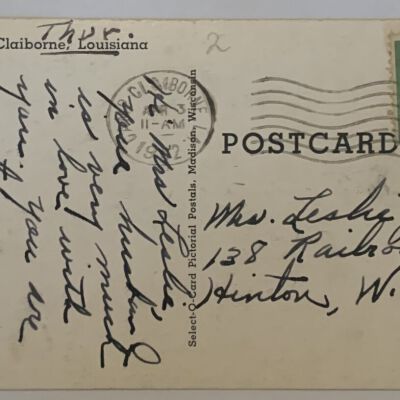 Thur.
Claiborne, Louisiana
2
CAMP CLAIBORNE LA.
3
11-AM
1942
Hi Mrs Leslie
your husband
is very much
in love with
you. If you are
Select-O-Card Pictorial Postals, Madison, Wisconsin
POSTCARD
Mrs. Leslie
138 Railro
Hinton, W.